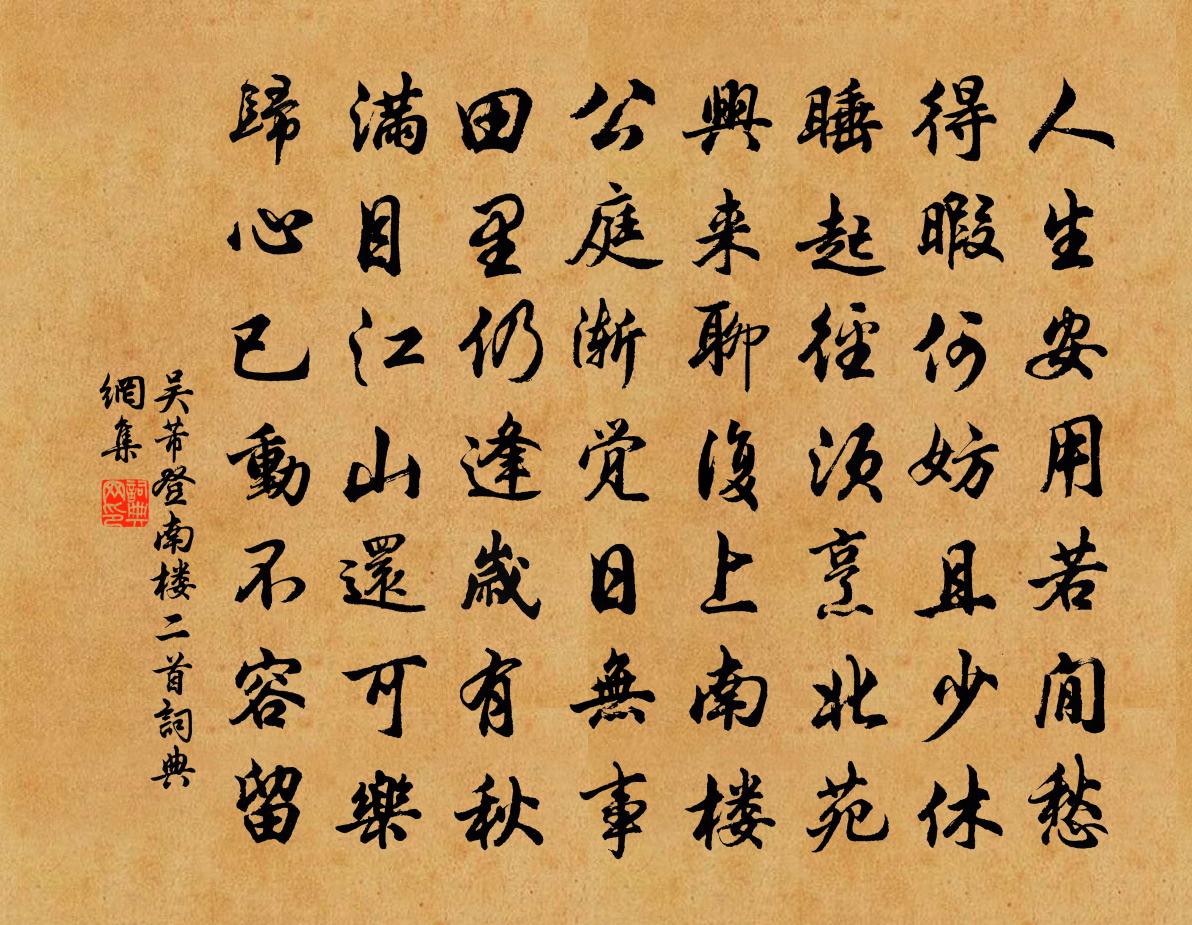 人生安用若闲愁
得暇何妨且少休
睡起径须烹北苑
興来聊復上南楼
公庭渐觉日無事
田里仍逢歲有秋
满目江山還可樂
歸心已動不容留
吴芾登南楼二首詞典
網集
詞典
网印